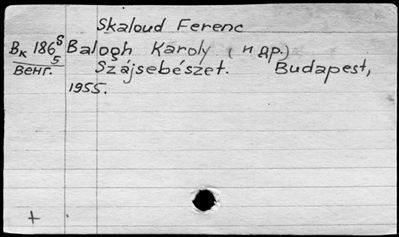 Skaloud Ferenc
Вк 186⁵/₅ Balogh Károly (и др.)
Венг. Szájsebészet. Budapest,
1955.
+